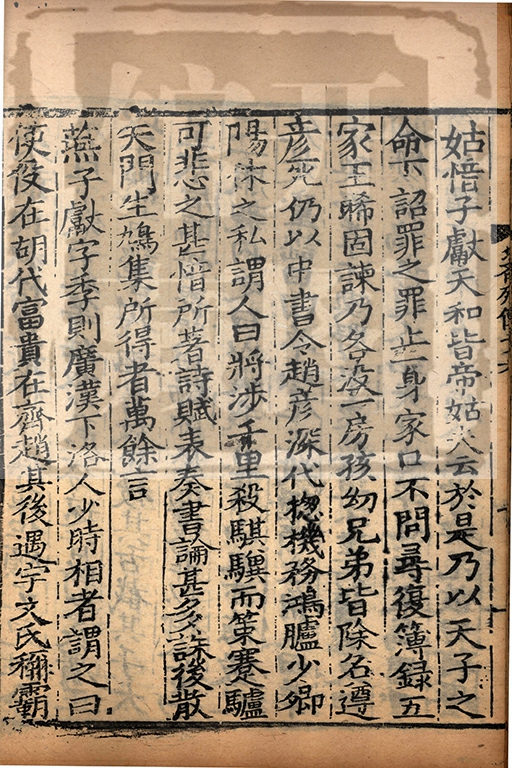 姑愔子獻天和皆帝姑夫云於是乃以天子之
命下詔罪之罪止一身家口不問尋復簿録五
家王晞固諫乃各没一房孩幼兄弟皆除名遵
彦死仍以中書令趙彦深代揔機務鴻臚少卿
陽休之私謂人曰將涉千里殺騏驥而策蹇驢
可悲之甚愔所著詩賦表奏書論甚多誅後散
失門生鳩集所得者萬餘言
燕子獻字季則廣漢下洛人少時相者謂之曰
使役在胡代富貴在齊趙其後遇宇文氏稱霸